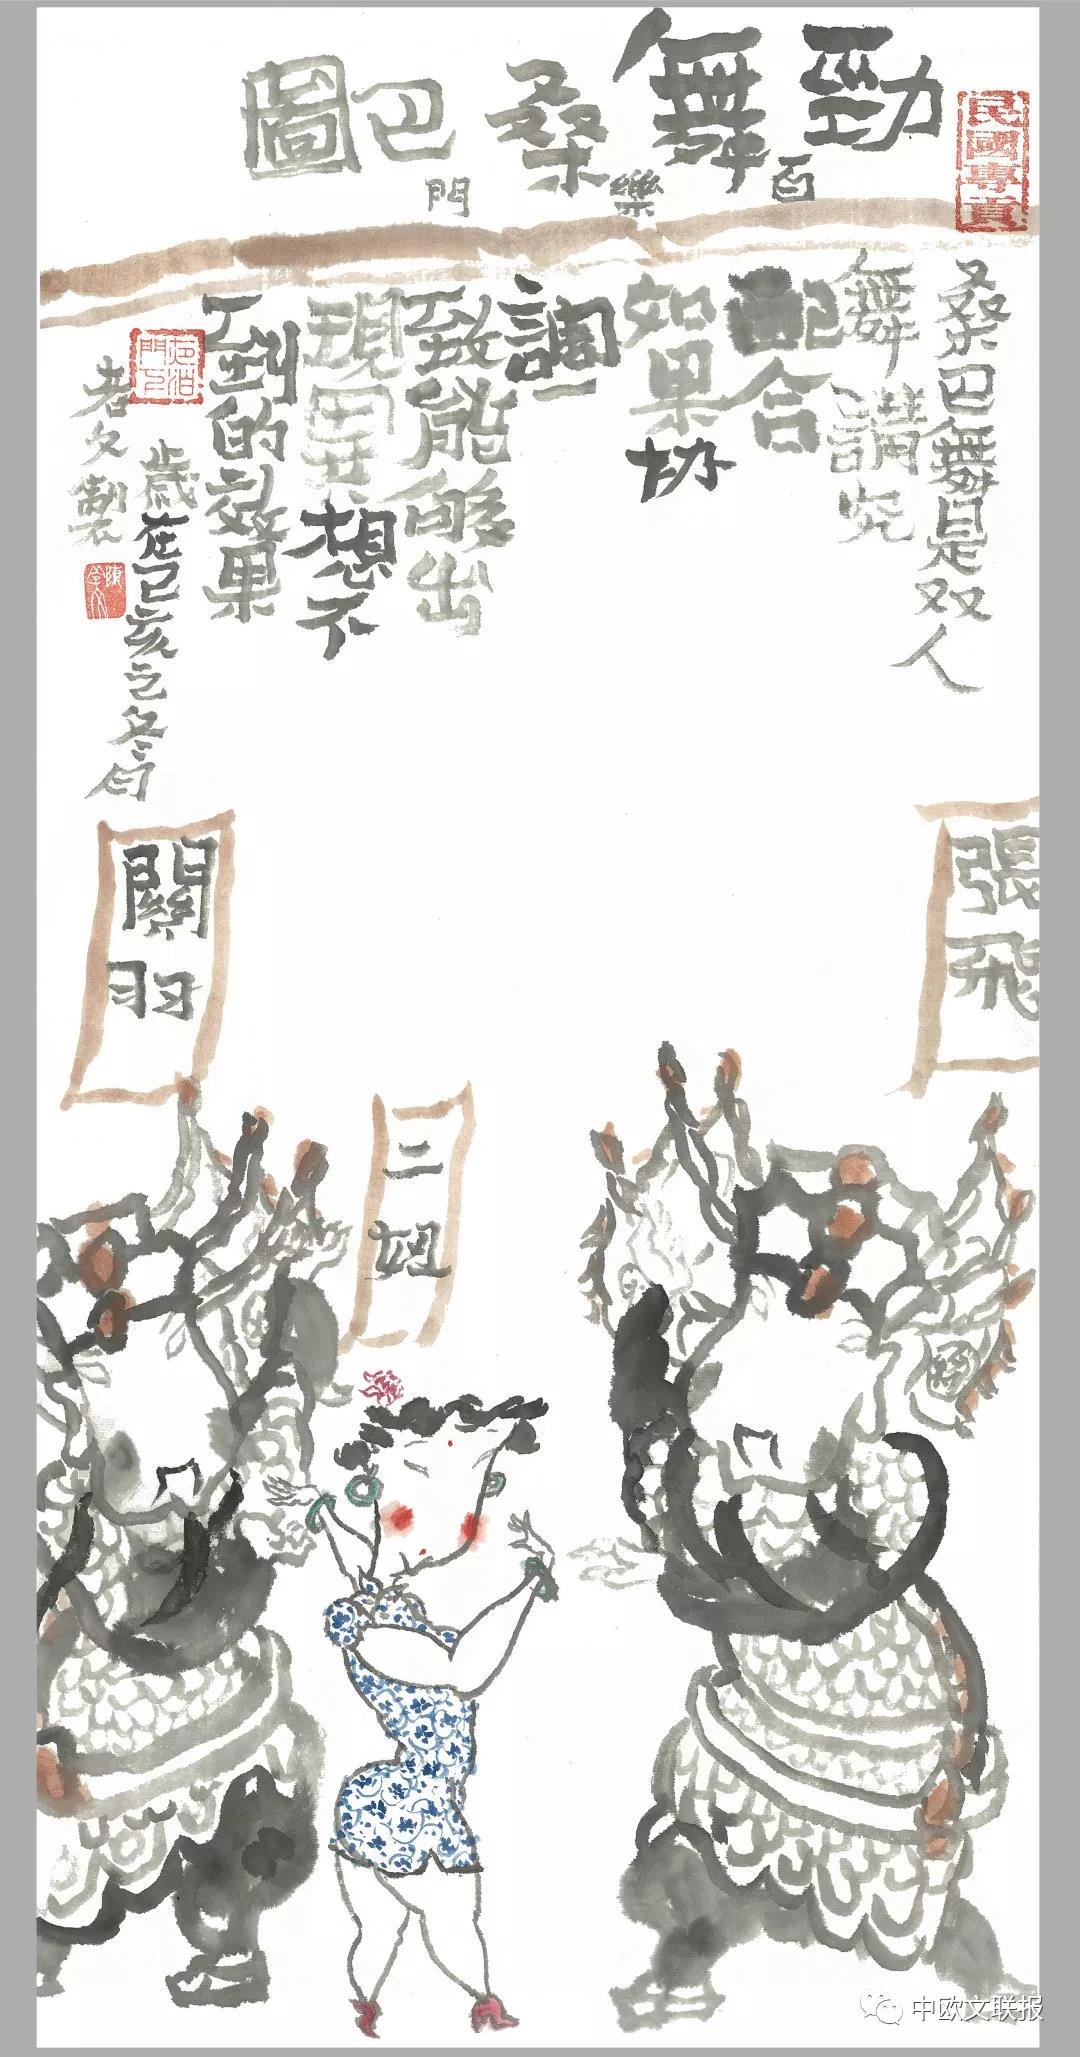 勁舞桑巴圖
百樂門
民國專賣
桑巴舞是双人
舞講究
配合
如果协
調一
致能够出
現出其想不
到的效果
歲在己亥之冬月
老文製
張飛
關羽
三姐
中欧文联报